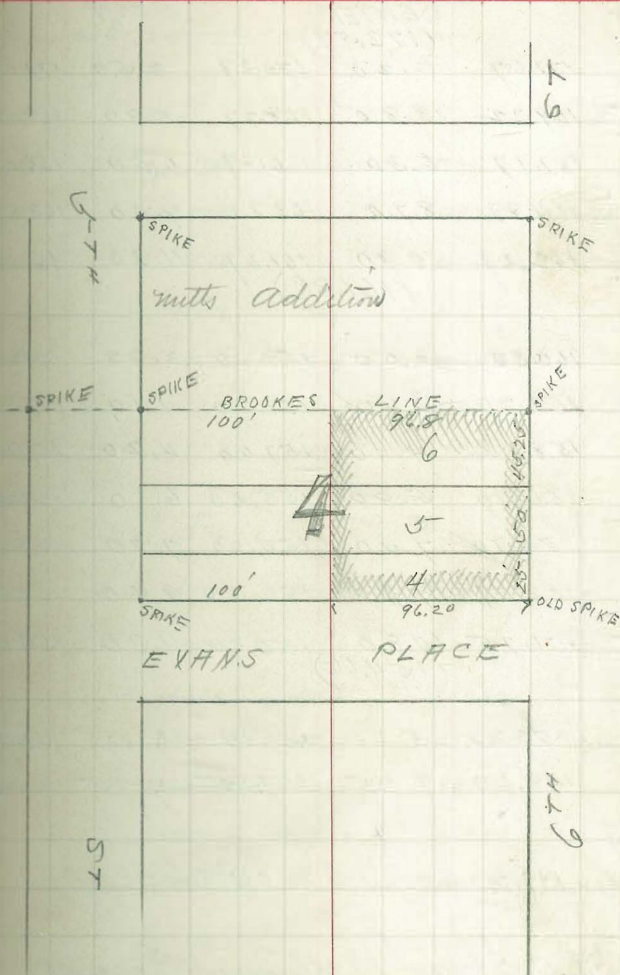 ST
5TH
SPIKE
SPIKE
nutts Addition
SPIKE
SPIKE
SPIKE
BROOKES LINE
100'
96.8
6
46.25
4
5
50
4
25
100'
96.20
SPIKE
OLD SPIKE
EVANS PLACE
6TH
ST